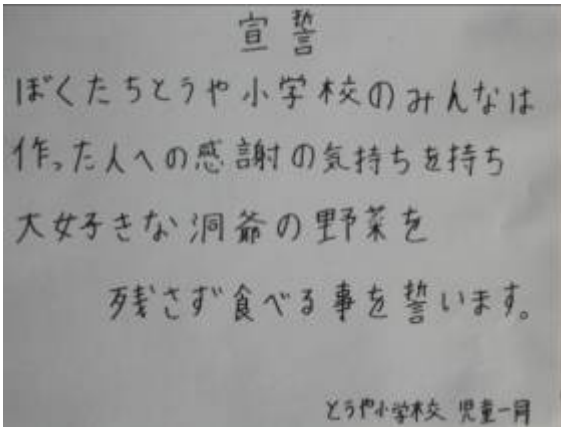 宣誓
ぼくたちとうや小学校のみんなは
作った人への感謝の気持ちを持ち
大好きな洞爺の野菜を
残さず食べる事を誓います。
とうや小学校 児童一同